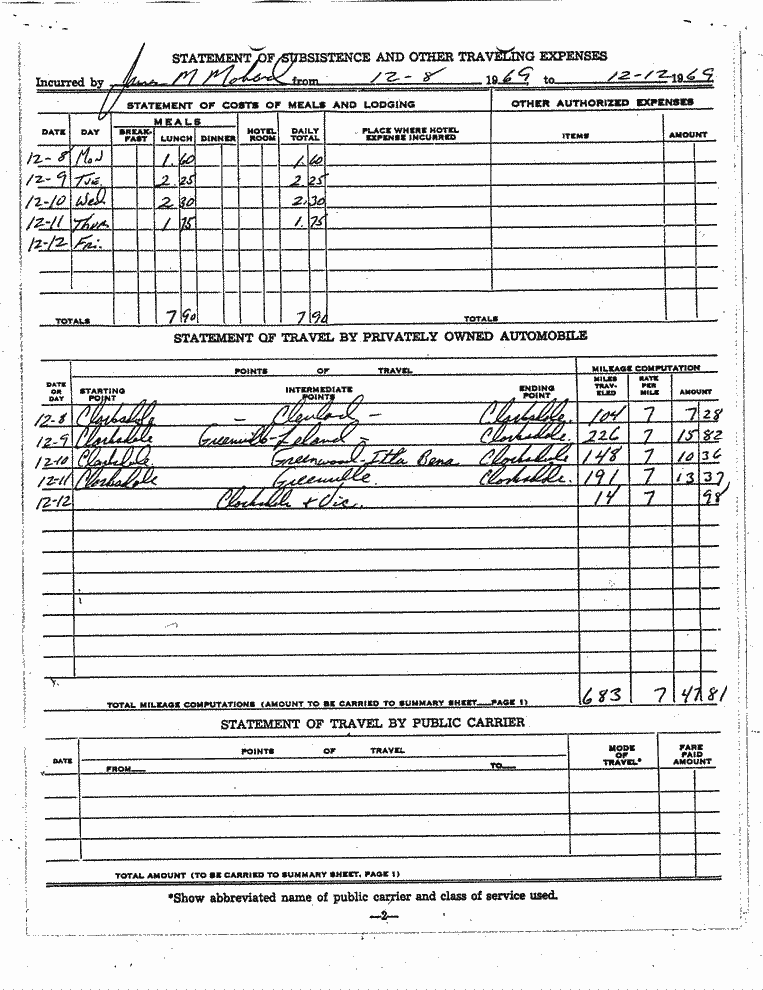 STATEMENT OF SUBSISTENCE AND OTHER TRAVELING EXPENSES
Incurred by James M Mohead from 12-8 1969 to 12-12 1969
STATEMENT OF COSTS OF MEALS AND LODGING OTHER AUTHORIZED EXPENSES
MEALS
DATE DAY BREAK-FAST LUNCH DINNER HOTEL ROOM DAILY TOTAL PLACE WHERE HOTEL EXPENSE INCURRED ITEMS AMOUNT
12-8 Mon 1.60 1.60
12-9 Tue. 2 25 2 25
12-10 Wed. 2 30 2.30
12-11 Thur 1 75 1.75
12-12 Fri.
TOTALS 7 90 7 90 TOTALS
STATEMENT OF TRAVEL BY PRIVATELY OWNED AUTOMOBILE
POINTS OF TRAVEL MILEAGE COMPUTATION
DATE OR DAY STARTING POINT INTERMEDIATE POINTS ENDING POINT MILES TRAV-ELED RATE PER MILE AMOUNT
12-8 Clarksdale - Cleveland - Clarksdale. 104 7 7 28
12-9 Clarksdale Greenville-Leland - Clarksdale. 226 7 15 82
12-10 Clarksdale. Greenwood-Itta Bena Clarksdale 148 7 10 36
12-11 Clarksdale Greenville. Clarksdale. 191 7 13 37
12-12 Clarksdale & Vic. 14 7 98
TOTAL MILEAGE COMPUTATIONS (AMOUNT TO BE CARRIED TO SUMMARY SHEET PAGE 1) 683 7 47 81
STATEMENT OF TRAVEL BY PUBLIC CARRIER
DATE POINTS OF TRAVEL MODE OF TRAVEL* FARE PAID AMOUNT
FROM TO
TOTAL AMOUNT (TO BE CARRIED TO SUMMARY SHEET, PAGE 1)
*Show abbreviated name of public carrier and class of service used.
—2—